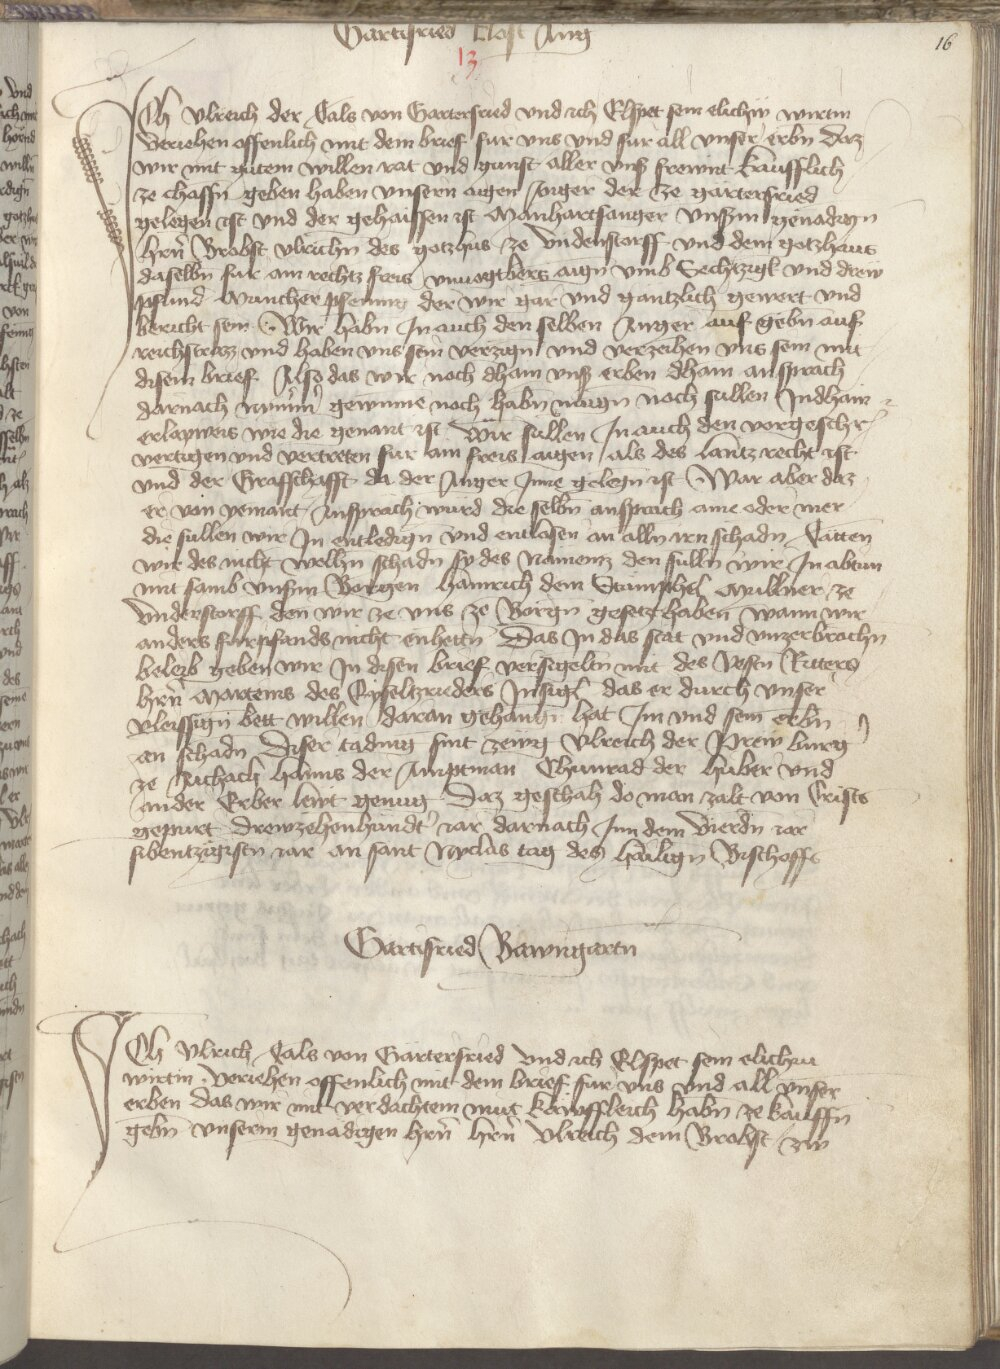 Gartisried Clost Ang
16
13
Ich Ulreich der Cals von Gartersried und ich Elspet sein elichiw wirtin
veriehen offenlich mit dem brief fur uns und fur all unser erbn daz
wir mit gutem willen rat und gunst aller unß frewnt kaufflich
ze chaffn geben haben unsern aigen Anger der ze gartersried
gelegen ist und der gehaissen ist Manhartsanger unßrm genadign
hern Brobst ulrichn des gotzhus ze Undenstorff und dem gotzhaus
daselbn fur ain rechtz freis unvogtbers aign umb Sechtzigk und drew
pfund Muncher pfening der wir gar und gantzlich gewert und
bericht sein Wir habn In auch den selben Anger auf gebn auf
reichstrazz und haben uns sein verzign und verzeihen uns sein mit
disem brief Also das wir noch dhain unß erben dhain ansprach
darnach nymmer gewinne noch habn mugn noch sullen Indhain
erlayweis wie die genant ist Wir sullen In auch den vorgeschr
vertigen und vertreten fur ain freis aigen als des lantz recht ist
und der Grafschafft da der Anger Inne gelegn ist War aber daz
er von yemant Ansprach wurd die selbn ansprach aine oder mer
die sullen wir In entledign und entlosen an alln irn schadn Tatten
wir des nicht welhn schadn sy des Namenz den sulln wir In abtun
mit samb unsnn Borgen hainrich dem Stumphel Mullner ze
Understorff den wir ze uns ze Borgn gesetzt haben wann wir
anders furpfands nicht enhetn Das In das stat und unzerbrochn
beleib geben wir In disen brief versigeltn mit des Vesten Ritters
hern Marteins des Eyseltzrieders Insigl das er durch unser
vleissign bett willen daran gehangn hat Im und sein erbn
an schadn Diser tading sint zewg Ulreich der Prew burg
ze Aichach hanns der Amptman Chunrad der huber und
ander Erber lewt genug Daz geschah do man zalt von Crists
gepurt Drewzehenhundt iar darnach Inn dem Vierdn iar
sibentzigistn iar an sant Nyclas tag des hailign Bischoffs
Gartisried Bawmgartn
Ich Ulrich Cals von Gartersried und ich Elspet sein elichiu
wirtin veriehen offenlich mit dem brief fur uns und all unser
erben das wir mit verdachtem mut kawffleich habn ze kauffn
gebn unserm genadigen hern hern Ulreich dem Brobst zw